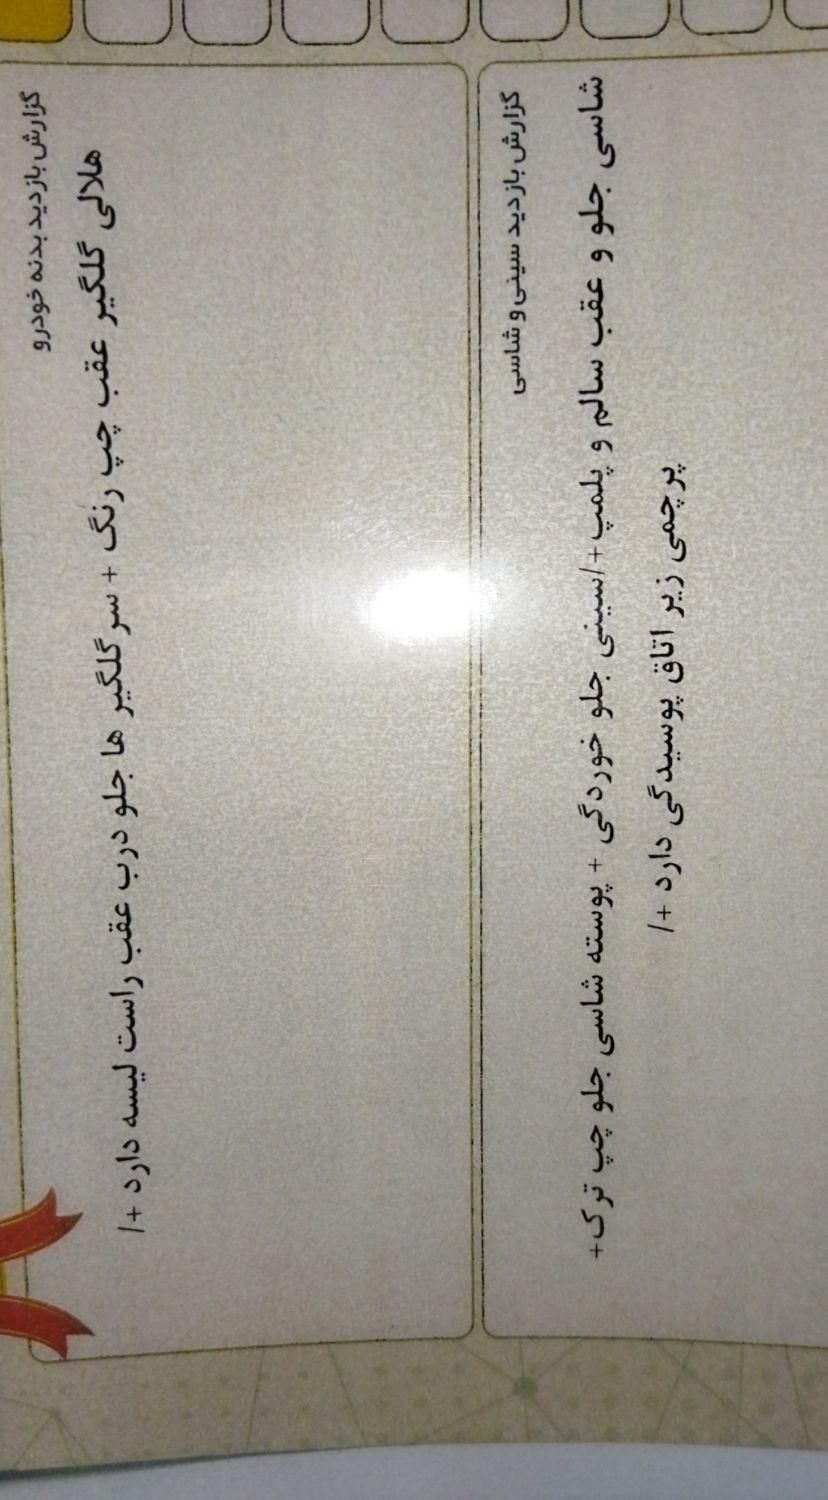 گزارش بازدید بدنه خودرو
هلالی گلگیر عقب چپ رنگ + سر گلگیر ها جلو درب عقب راست لیسه دارد +/
گزارش بازدید سینی و شاسی
شاسی جلو و عقب سالم و پلمپ +/سینی جلو خوردگی + پوسته شاسی جلو چپ ترک+
پرچمی زیر اتاق پوسیدگی دارد +/